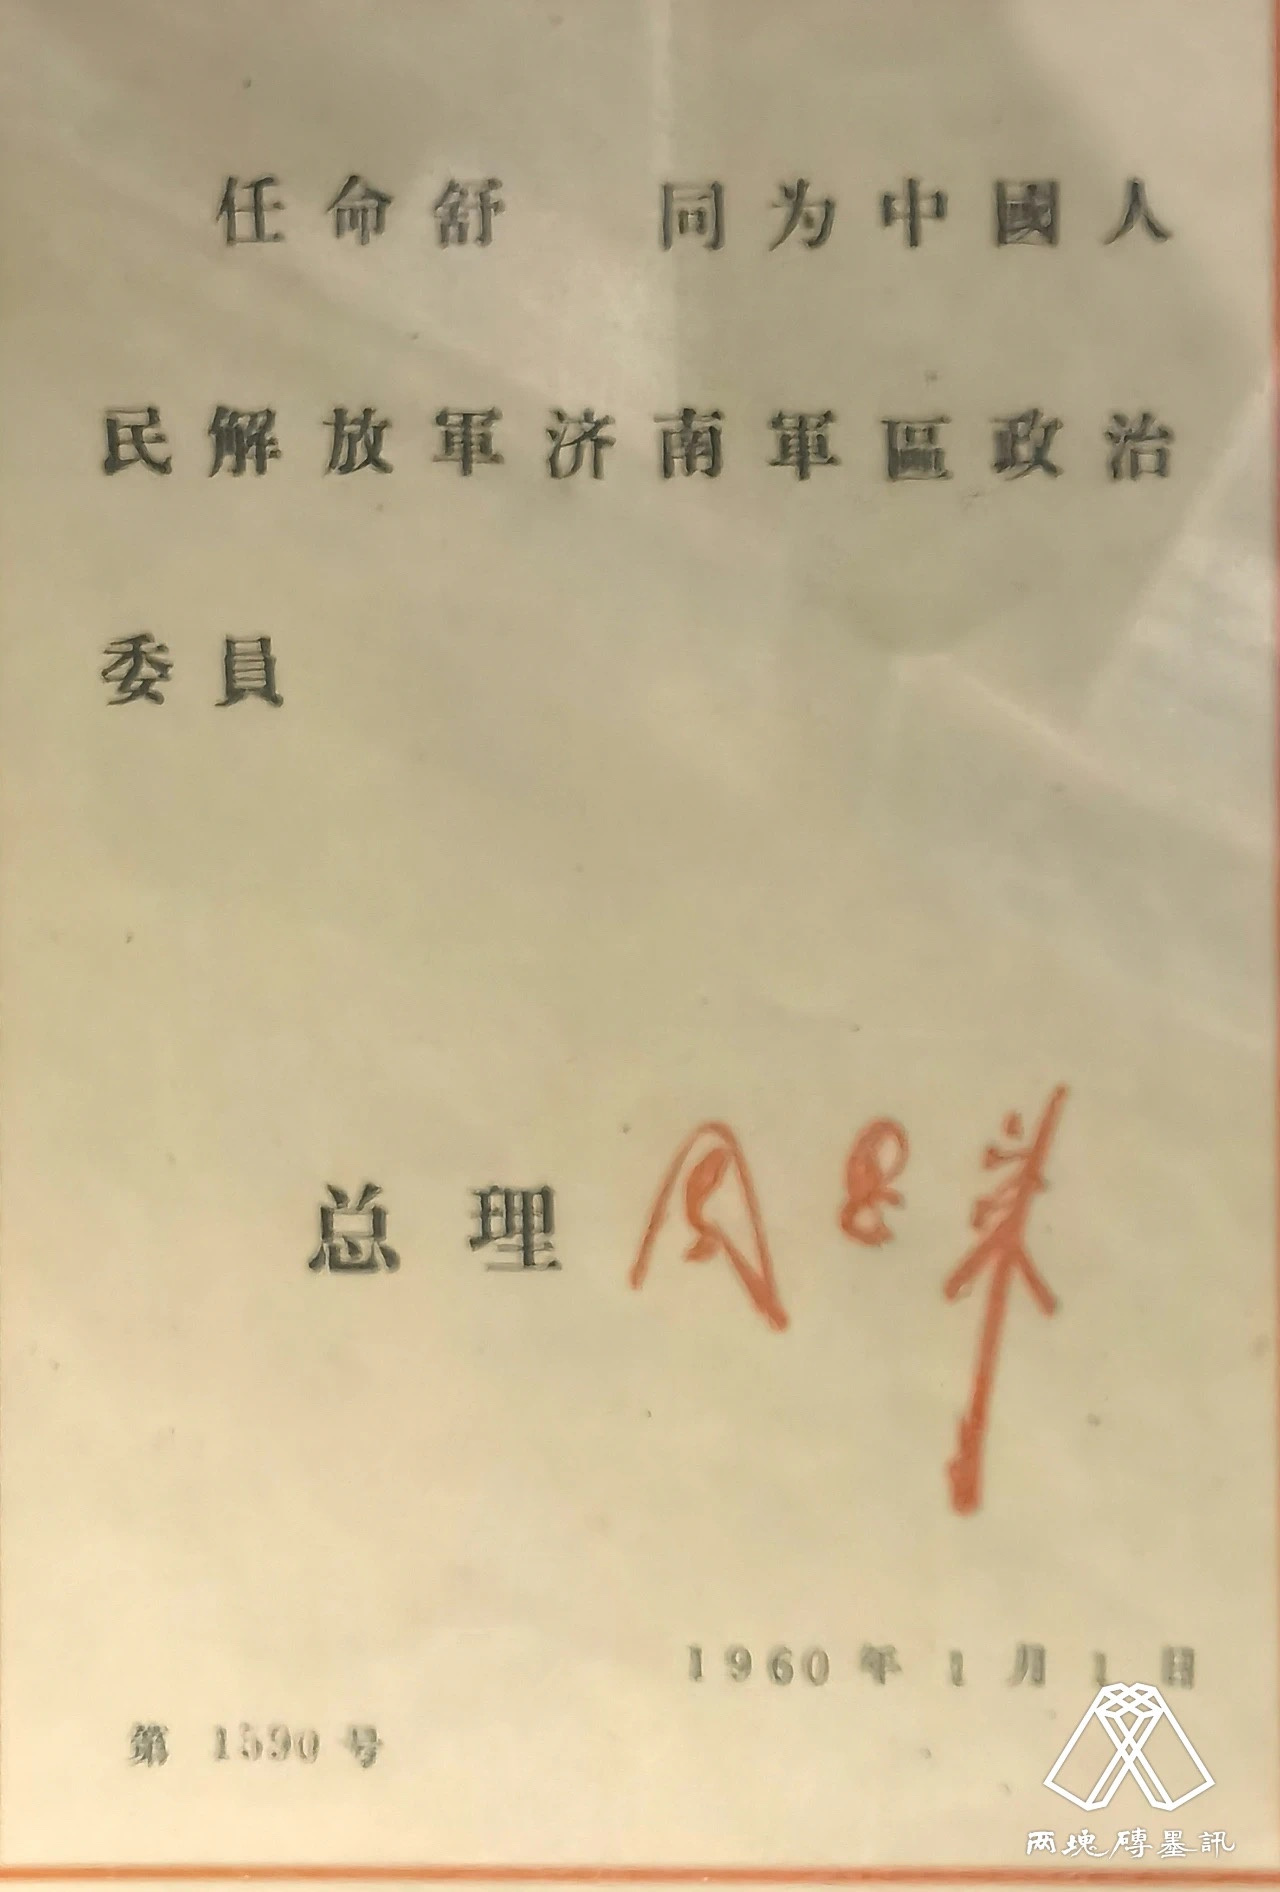 任命舒　同为中國人
民解放軍济南軍區政治
委員
总理 周恩来
1960年1月1日
第 1590 号
两塊磚墨訊